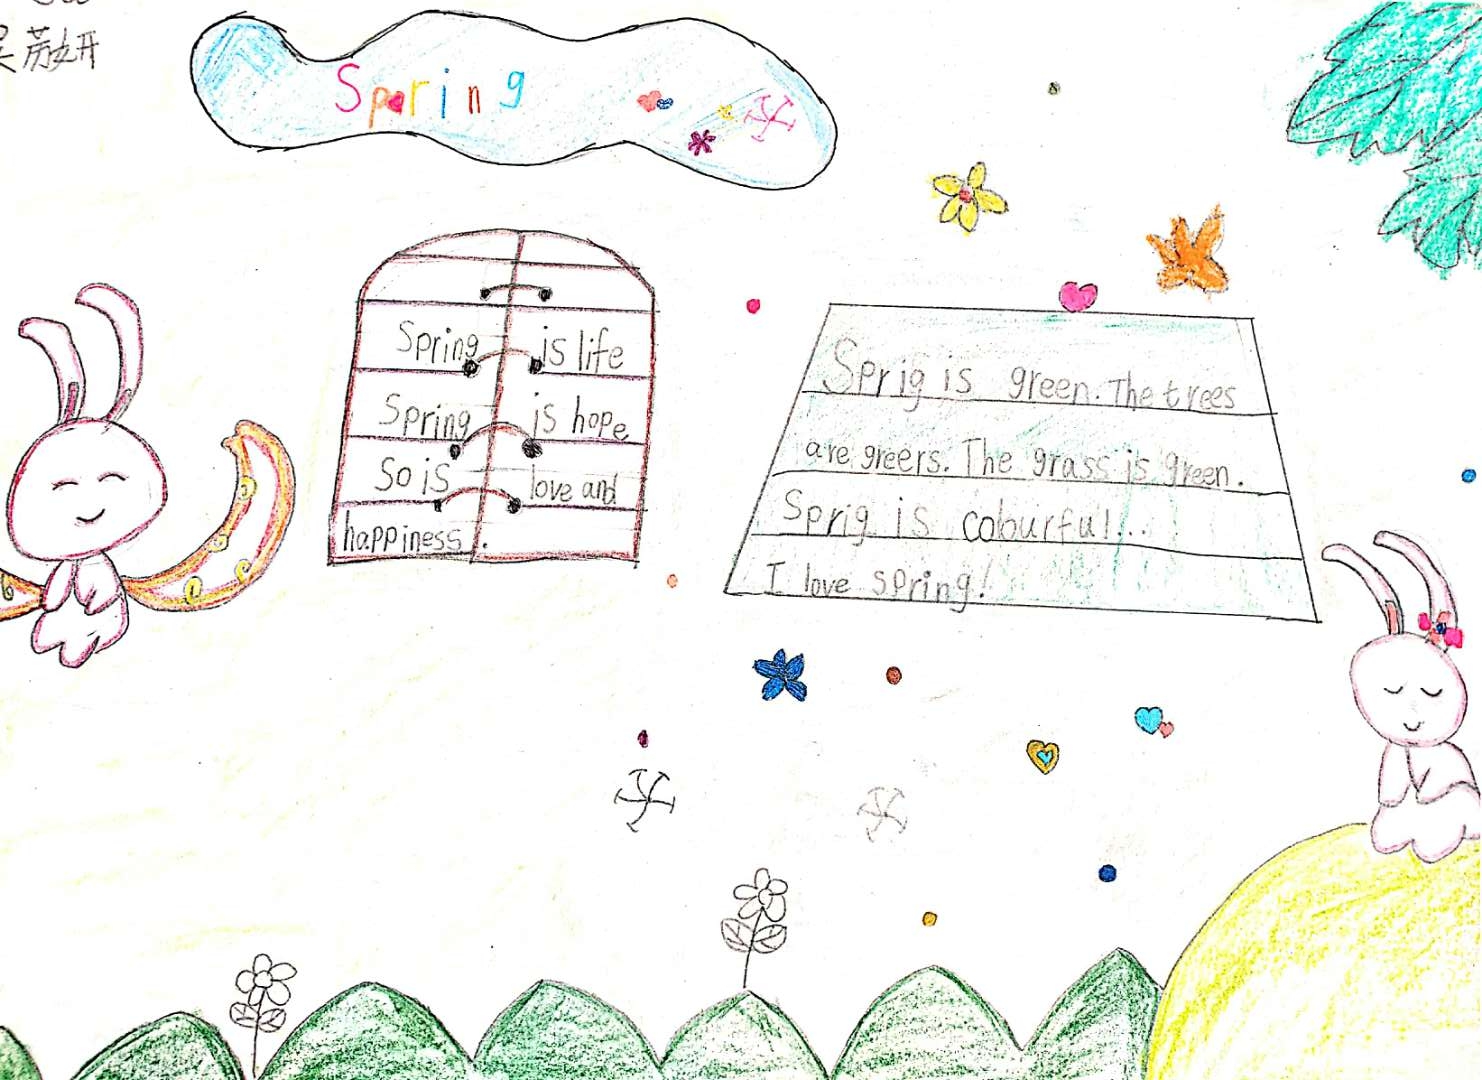 Spring
Spring is life
Spring is hope
So is love and
happiness.
Sprig is green. The trees
are greers. The grass is green.
Sprig is colourful...
I love spring!